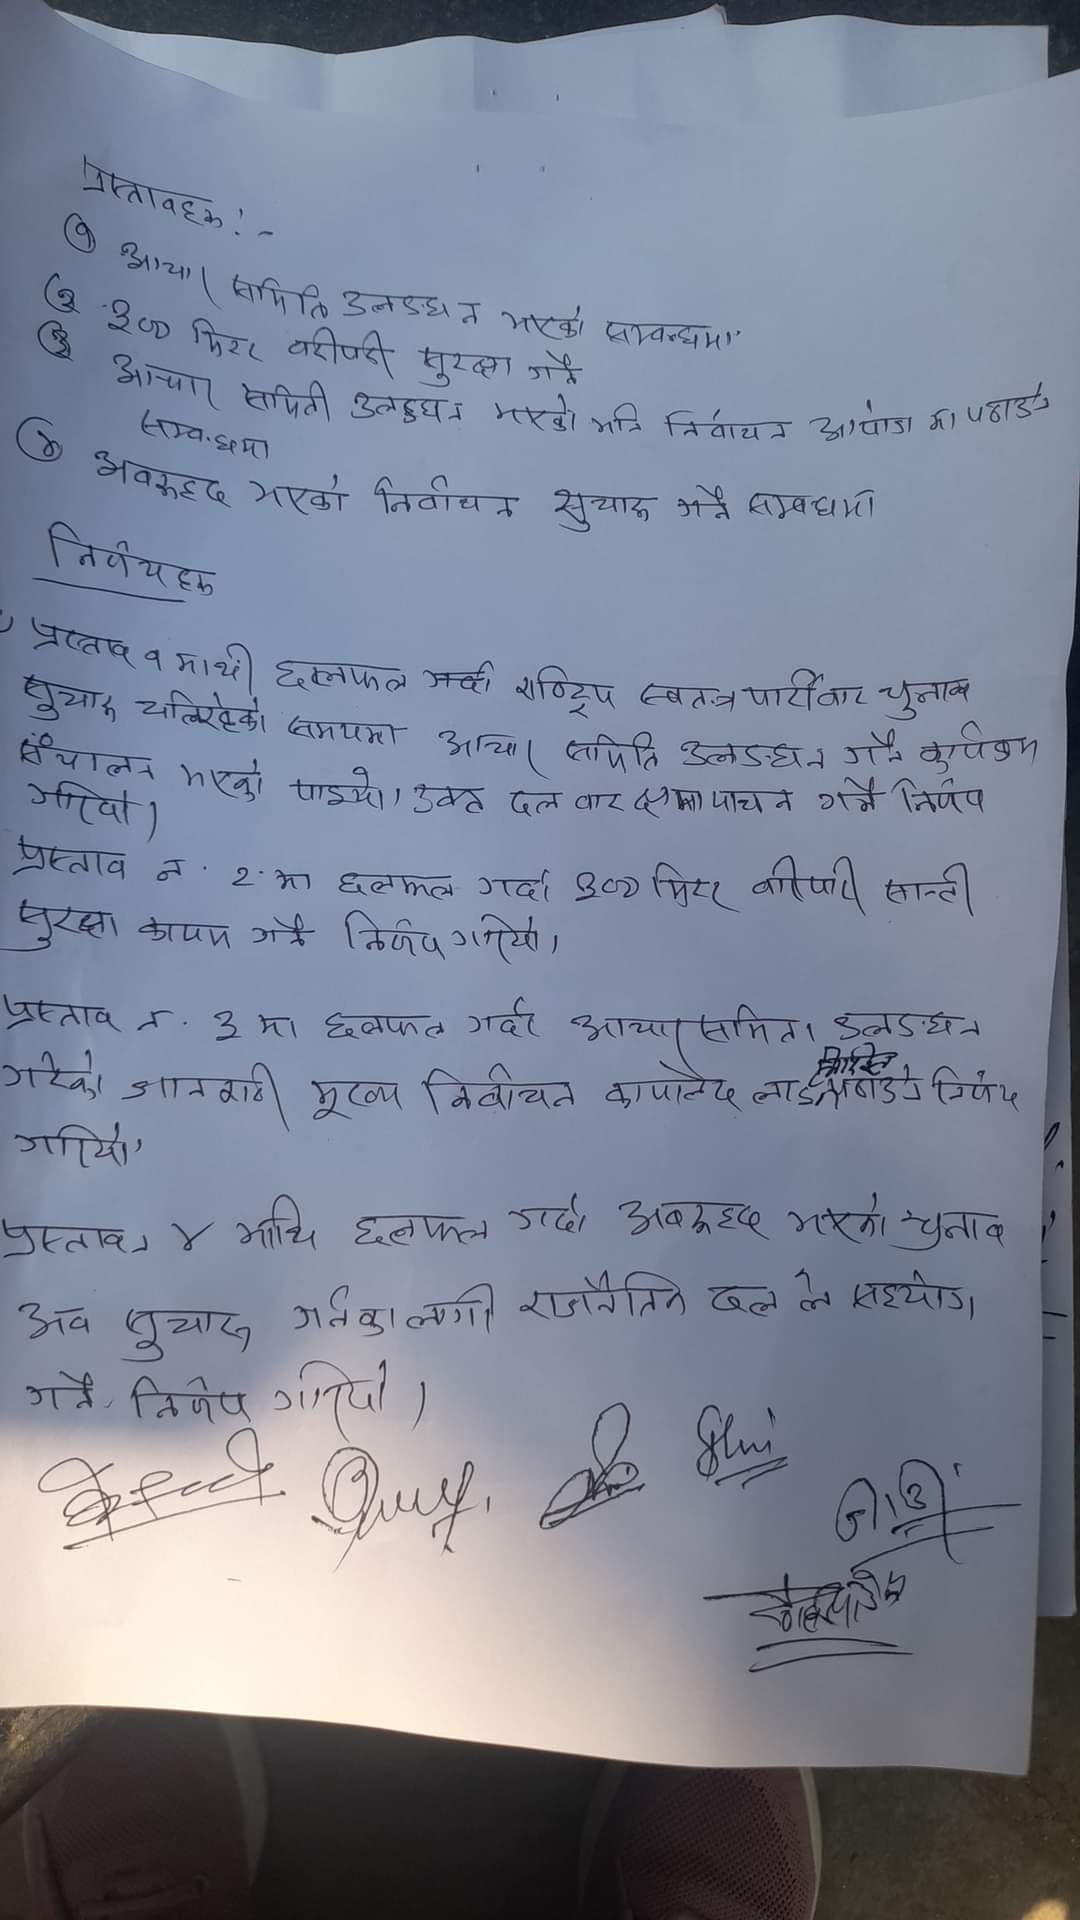 प्रस्तावहरू :-
① आचार समिति उलङघन भएको सम्बन्धमा
② ३०० मिटर वरीपरी सुरक्षा गर्ने
③ आचार समिती उलङघन भएको भनि निर्वाचन आयोग मा पठाउने
सम्बन्धमा
④ अवरूद्द भएको निर्वाचन सुचारू गर्ने सम्बधमा
निर्णयहरू
प्रस्ताव १ माथी छलफल गर्दा राष्ट्रिय स्वतन्त्र पार्टीवाट चुनाव
सुचारू चलिरहेको समयमा आचार समिति उलङघन गर्ने कार्यक्रम
संचालन भएको पाइयो। उक्त दल वाट क्षमायाचन गर्ने निर्णय
गरियो।
प्रस्ताव न. २. मा छलफल गर्दा ३०० मिटर वरिपरि सान्ती
सुरक्षा कायम गर्ने निर्णय गरियो।
प्रस्ताव न. ३ मा छलफल गर्दा आचार समिति उलङघन
गरेको जानकारी मूख्य निर्वाचन कार्यालय लाई पठाउने निर्णय
गरियो।
प्रस्ताव न ४ माथि छलफल गर्दा अवरूद्द भएको चुनाव
अव सुचारू गर्नका लागी राजनैतिक दल ले सहयोग
गर्ने निर्णय गरियो।